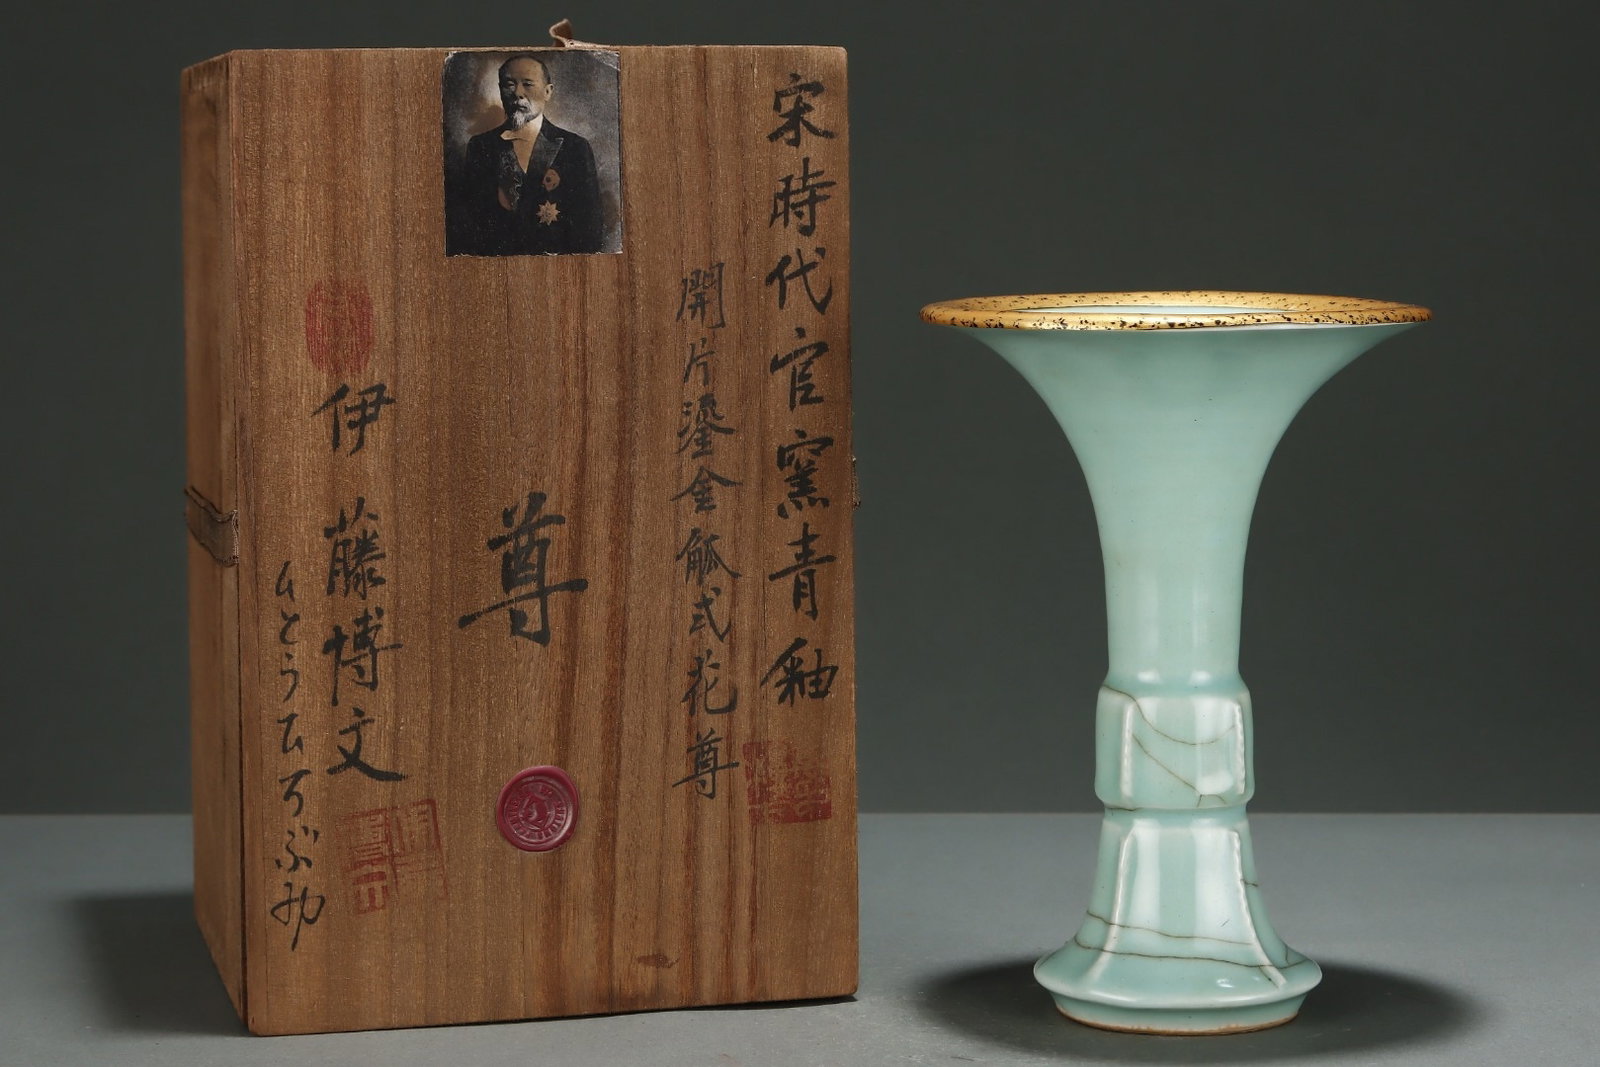 宋時代官窯青釉
開片鎏金觚式花尊
尊
伊藤博文
いとうひろぶみ